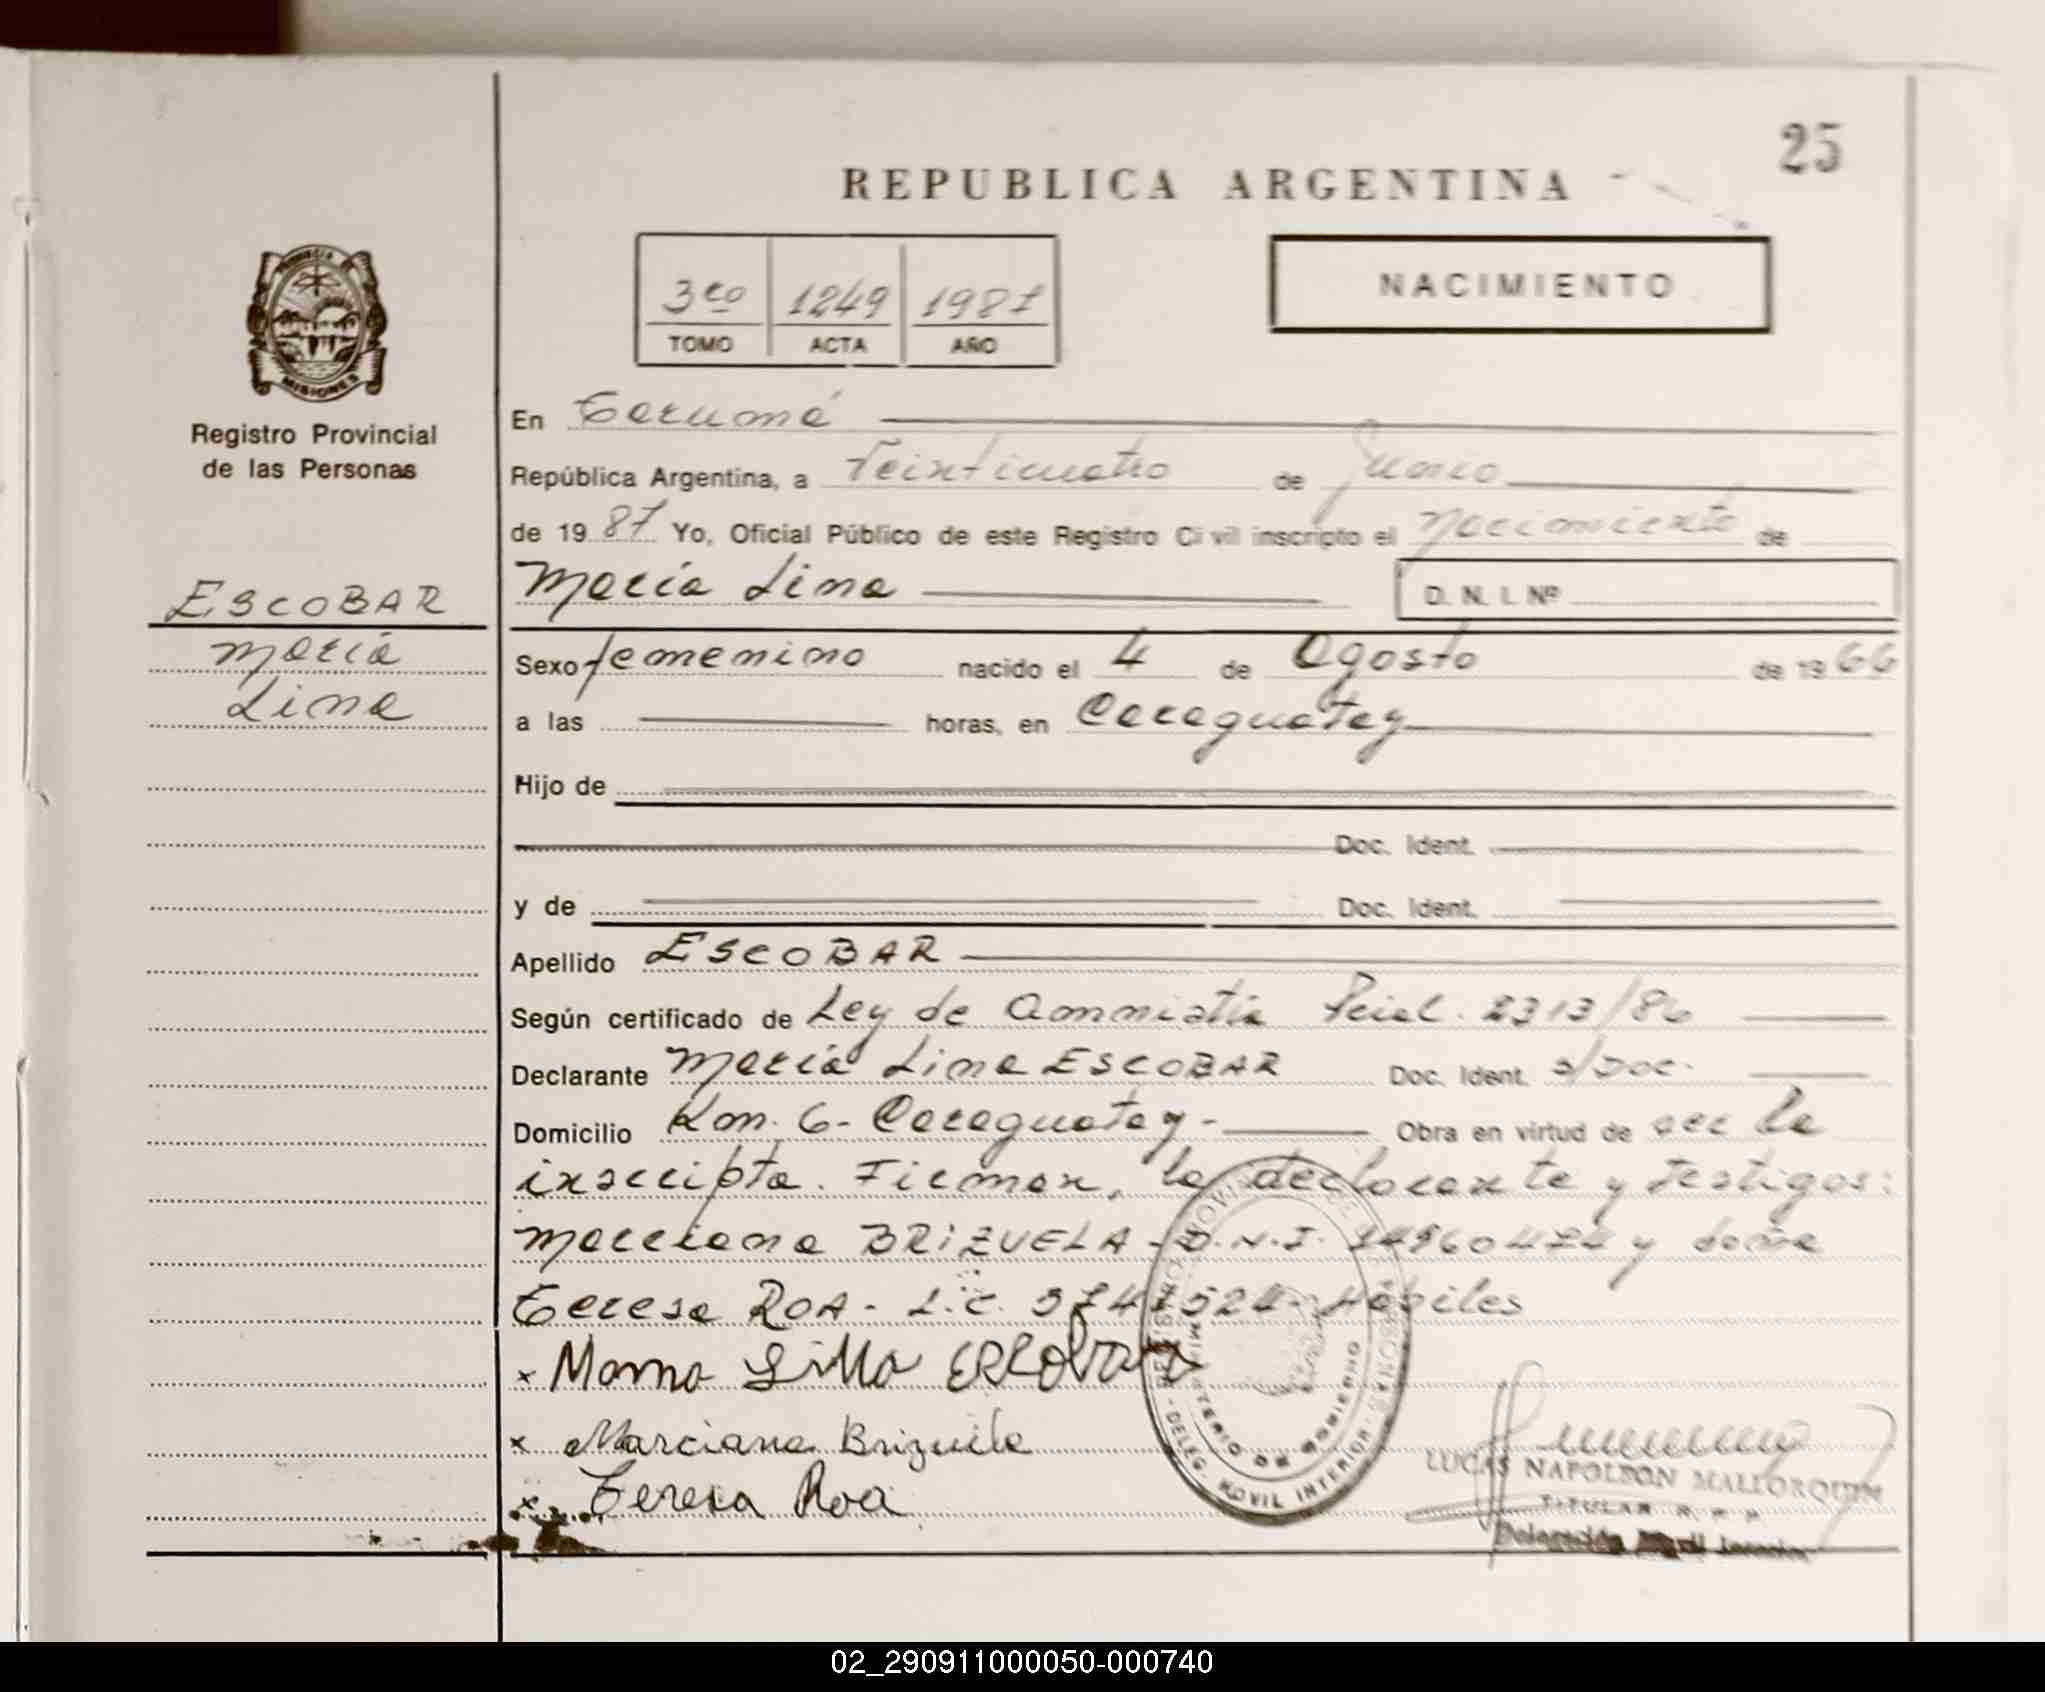 25
REPUBLICA ARGENTINA
3ro 1249 1987
TOMO ACTA AÑO
NACIMIENTO
PROVINCIA DE
MISIONES
Registro Provincial
de las Personas
ESCOBAR
María
Lina
En Tarumá
República Argentina, a Veinticuatro de Junio
de 1987 Yo, Oficial Público de este Registro Civil inscripto el Nacimiento de
María Lina D. N. I. Nº
Sexo femenino nacido el 4 de Agosto de 1966
a las horas, en Caraguatay
Hijo de
Doc. Ident.
y de Doc. Ident.
Apellido ESCOBAR
Según certificado de Ley de Amnistía Pcial. 2313/86
Declarante María Lina ESCOBAR Doc. Ident. s/Doc.
Domicilio Km. 6- Caraguatay- Obra en virtud de ser la
inscripta. Firman, la declarante y testigos:
Marciana BRIZUELA- D.N.I. y doña
Teresa ROA- L.C. Hábiles
x Escobar
x Marciana Brizuela
x Teresa Roa
MINISTERIO DE GOBIERNO
DELEG. MOVIL INTERIOR
LUCAS NAPOLEON MALLORQUIN
TITULAR R. P. P.
Delegación
02_290911000050-000740